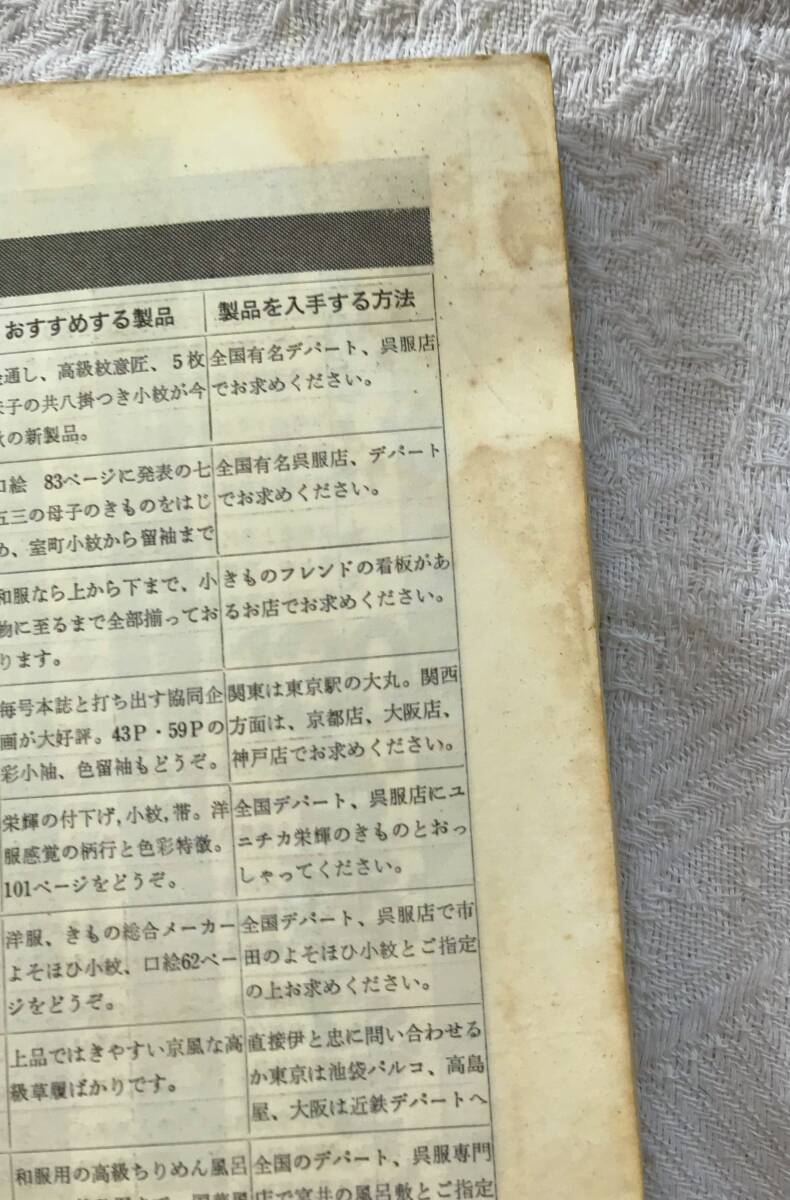 おすすめする製品
製品を入手する方法
通し、高級紋意匠、5枚
子の共八掛つき小紋が今
の新製品。
全国有名デパート、呉服店
でお求めください。
口絵 83ページに発表の七
五三の母子のきものをはじ
め、室町小紋から留袖まで
全国有名呉服店、デパート
でお求めください。
和服なら上から下まで、小
物に至るまで全部揃ってお
ります。
きものフレンドの看板があ
るお店でお求めください。
毎号本誌と打ち出す協同企
画が大好評。43P・59Pの
彩小袖、色留袖もどうぞ。
関東は東京駅の大丸。関西
方面は、京都店、大阪店、
神戸店でお求めください。
栄輝の付下げ,小紋,帯。洋
服感覚の柄行と色彩特徴。
101ページをどうぞ。
全国デパート、呉服店にユ
ニチカ栄輝のきものとおっ
しゃってください。
洋服、きもの総合メーカー
よそほひ小紋、口絵62ペー
ジをどうぞ。
全国デパート、呉服店で市
田のよそほひ小紋とご指定
の上お求めください。
上品ではきやすい京風な高
級草履ばかりです。
直接伊と忠に問い合わせる
か東京は池袋パルコ、高島
屋、大阪は近鉄デパートへ
和服用の高級ちりめん風呂
全国のデパート、呉服専門
店で宮井の風呂敷とご指定